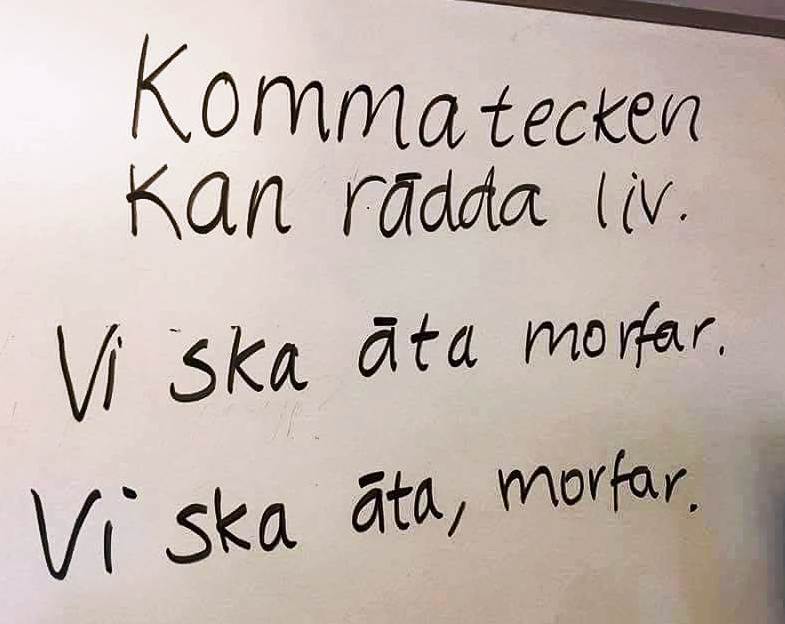 Kommatecken
kan rädda liv.
Vi ska äta morfar.
Vi ska äta, morfar.